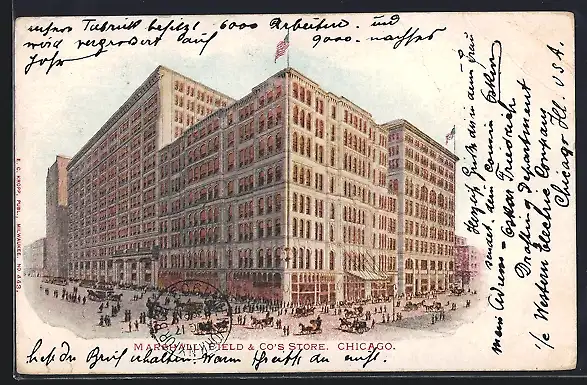 unsere Fabrik besitzt 6000 Arbeiter und
wird vergrößert auf 9000 nächstes
Jahr
Herzlich Gruss an dein Frau
sendet dein Cousin
mein Adress = Oskar Friedrich
Drafting department
c/o Western Electric Company
Chicago Ill. USA.
E. C. KROPP, PUBL., MILWAUKEE. NO. 448.
MARSHALL FIELD & CO'S STORE, CHICAGO.
hast du Brief erhalten. Wann schreibst du mehr.